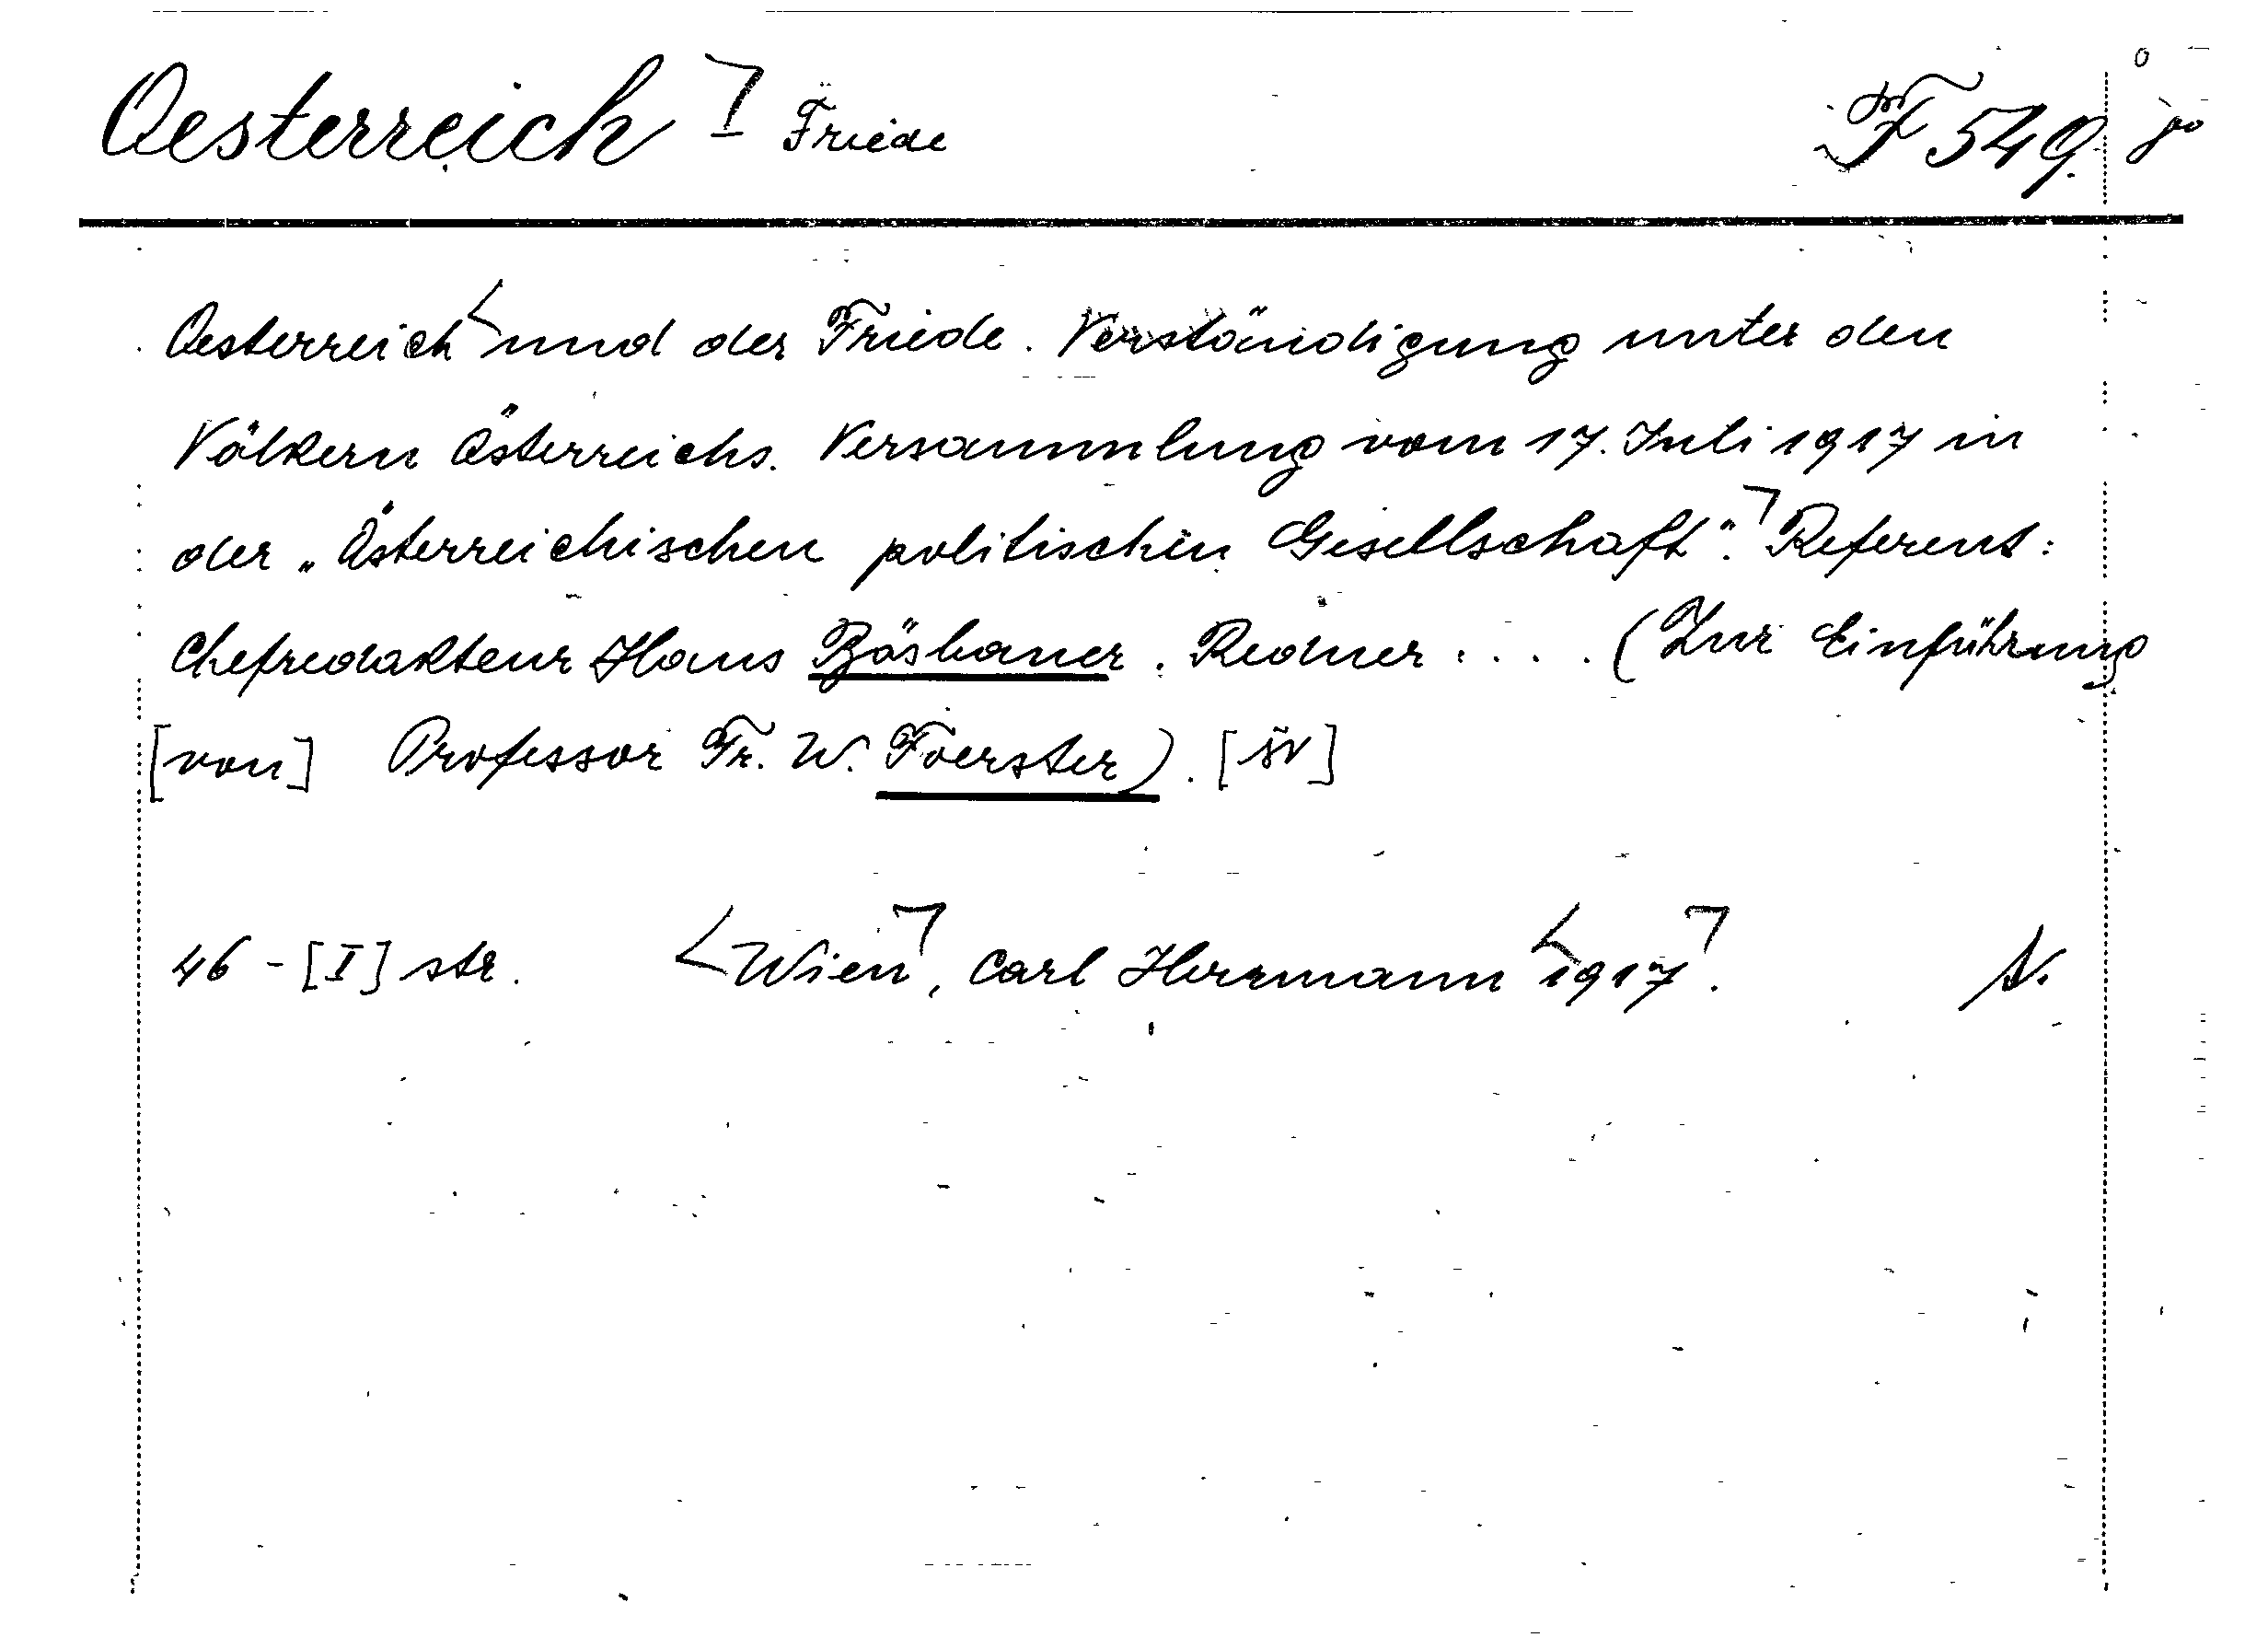 Oesterreich Friede F 549.
Oesterreich und der Friede. Verständigung unter den
Völkern Österreichs. Versammlung vom 17. Juli 1917 in
der „Österreichischen politischen Gesellschaft". Referent:
Chefredakteur Hans Bösbauer. Redner .... (Zur Einführung
[von] Professor Fr. W. Foerster). [šv]
46 - [I] str. Wien, Carl Herrmann 1917.